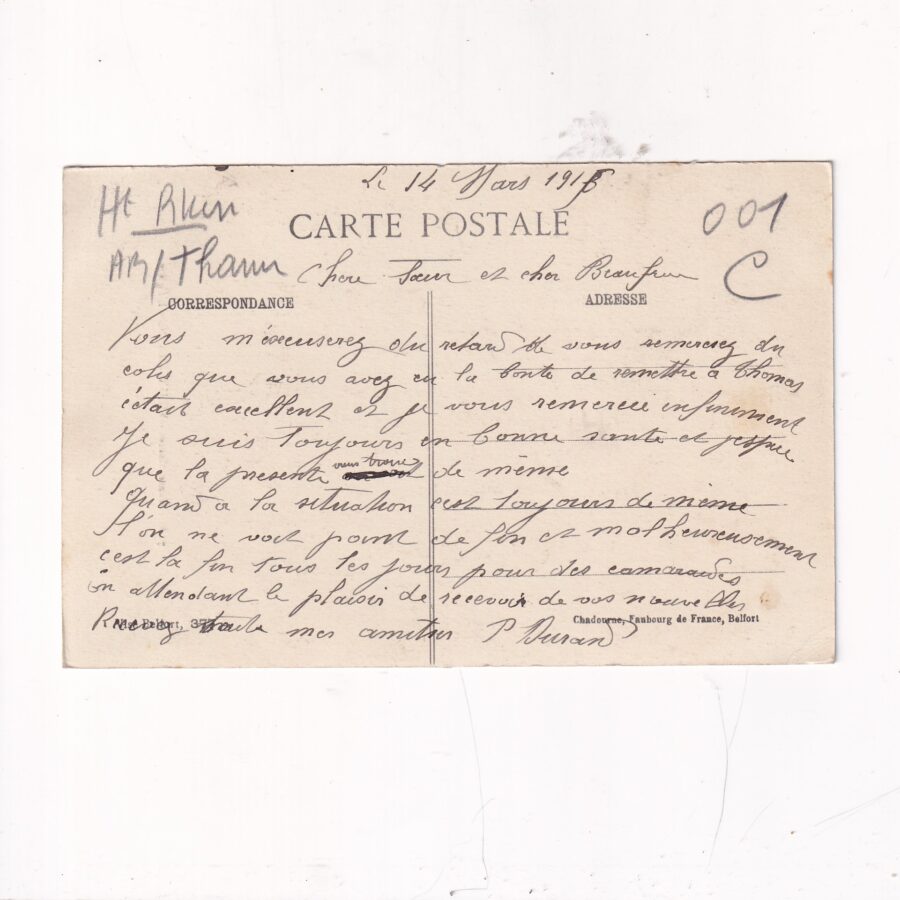 Le 14 Mars 1916
Ht Rhin
001
CARTE POSTALE
AR/Thann
C
Chere Sœur et cher Beaufrere
CORRESPONDANCE
ADRESSE
Vous m'éxcuserez du retard de vous remerciez du
colis que vous avez eu la bonte de remettre a Thomas
c'était excellent et je vous remercie infiniment
Je suis toujours en bonne sante et j'espere
que la presente vous trouve de même
Quand a la situation c'est toujours de même
l'on ne voit point de fin et malheureusement
c'est la fin tous les jours pour des camarades
En attendant le plaisir de recevoir de vos nouvelles
Recevez toute mes amities P Durand
Belfort,
Chadourne, Faubourg de France, Belfort